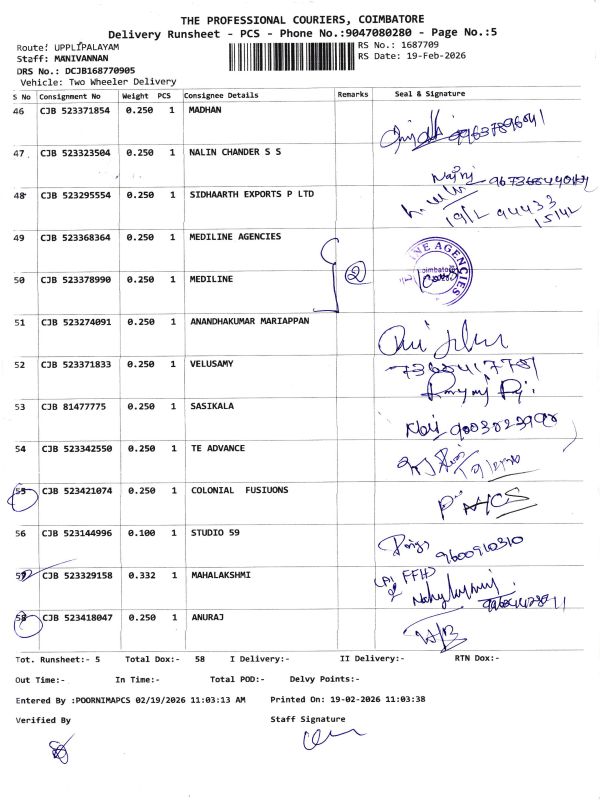 THE PROFESSIONAL COURIERS, COIMBATORE
Delivery Runsheet - PCS - Phone No.:9047080280 - Page No.:5
Route: UPPLIPALAYAM
RS No.: 1687709
Staff: MANIVANNAN
RS Date: 19-Feb-2026
DRS No.: DCJB168770905
Vehicle: Two Wheeler Delivery
S No Consignment No Weight PCS Consignee Details Remarks Seal & Signature
46 CJB 523371854 0.250 1 MADHAN
47 CJB 523323504 0.250 1 NALIN CHANDER S S
48 CJB 523295554 0.250 1 SIDHAARTH EXPORTS P LTD
19/2 94433
15142
49 CJB 523368364 0.250 1 MEDILINE AGENCIES
2
50 CJB 523378990 0.250 1 MEDILINE
51 CJB 523274091 0.250 1 ANANDHAKUMAR MARIAPPAN
52 CJB 523371833 0.250 1 VELUSAMY
53 CJB 81477775 0.250 1 SASIKALA
54 CJB 523342550 0.250 1 TE ADVANCE
55 CJB 523421074 0.250 1 COLONIAL FUSIUONS
56 CJB 523144996 0.100 1 STUDIO 59
9600910310
57 CJB 523329158 0.332 1 MAHALAKSHMI
58 CJB 523418047 0.250 1 ANURAJ
Tot. Runsheet:- 5 Total Dox:- 58 I Delivery:- II Delivery:- RTN Dox:-
Out Time:- In Time:- Total POD:- Delvy Points:-
Entered By :POORNIMAPCS 02/19/2026 11:03:13 AM Printed On: 19-02-2026 11:03:38
Verified By Staff Signature